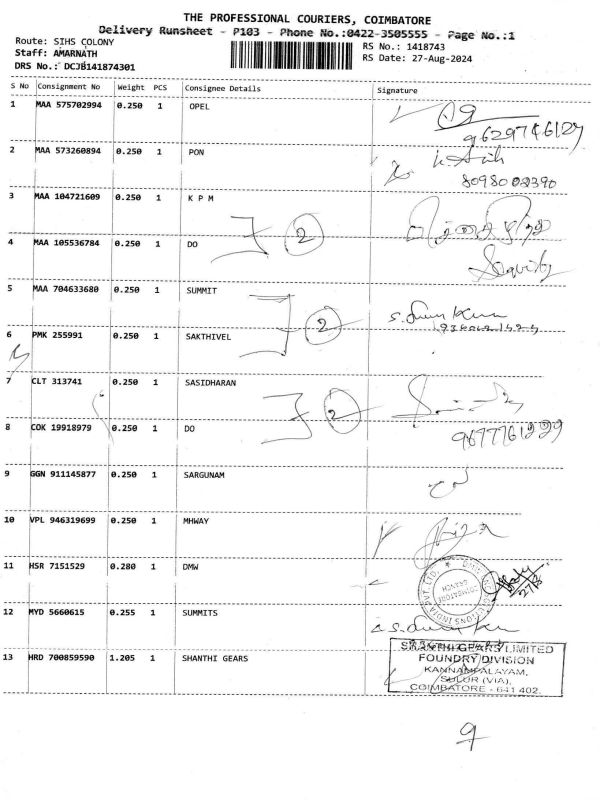 THE PROFESSIONAL COURIERS, COIMBATORE
Delivery Runsheet - P103 - Phone No.:0422-3505555 - Page No.:1
Route: SIHS COLONY
RS No.: 1418743
Staff: AMARNATH
RS Date: 27-Aug-2024
DRS No.: DCJB141874301
S No Consignment No Weight PCS Consignee Details Signature
1 MAA 575702994 0.250 1 OPEL
2 MAA 573260894 0.250 1 PON
3 MAA 104721609 0.250 1 K P M
4 MAA 105536784 0.250 1 DO
2
5 MAA 704633680 0.250 1 SUMMIT
6 PMK 255991 0.250 1 SAKTHIVEL
2
7 CLT 313741 0.250 1 SASIDHARAN
8 COK 19918979 0.250 1 DO
2
9 GGN 911145877 0.250 1 SARGUNAM
10 VPL 946319699 0.250 1 MHWAY
11 HSR 7151529 0.280 1 DMW
12 MYD 5660615 0.255 1 SUMMITS
13 HRD 700859590 1.205 1 SHANTHI GEARS
SHANTHI GEARS LIMITED
FOUNDRY DIVISION
KANNAMPALAYAM,
SULUR (VIA),
COIMBATORE - 641 402.
9